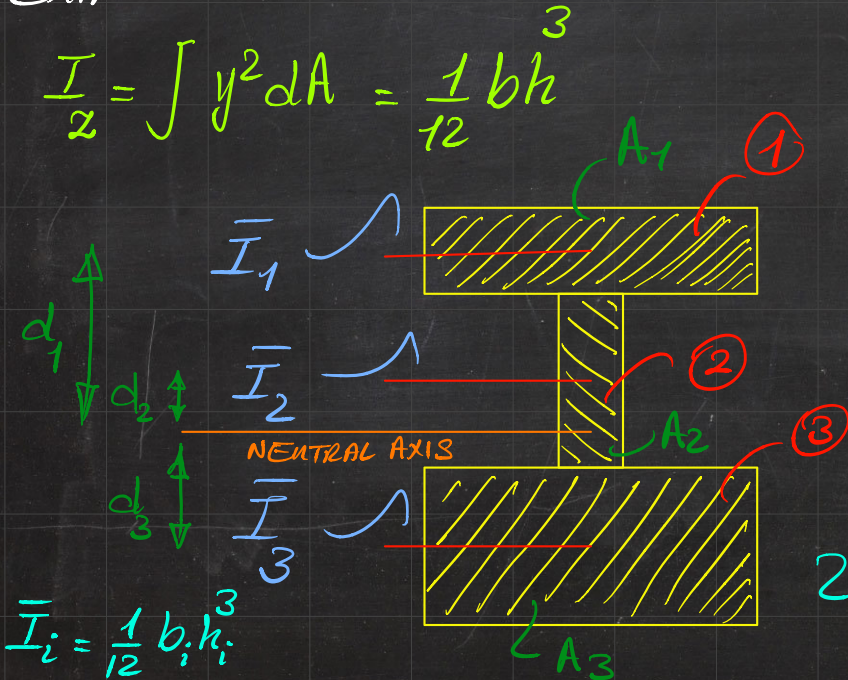 I_z = ∫ y² dA = 1/12 bh³
A₁
1
Ī₁
d₁
Ī₂
2
d₂
A₂
3
NEUTRAL AXIS
d₃
Ī₃
2
Ī_i = 1/12 b_i h_i³
A₃